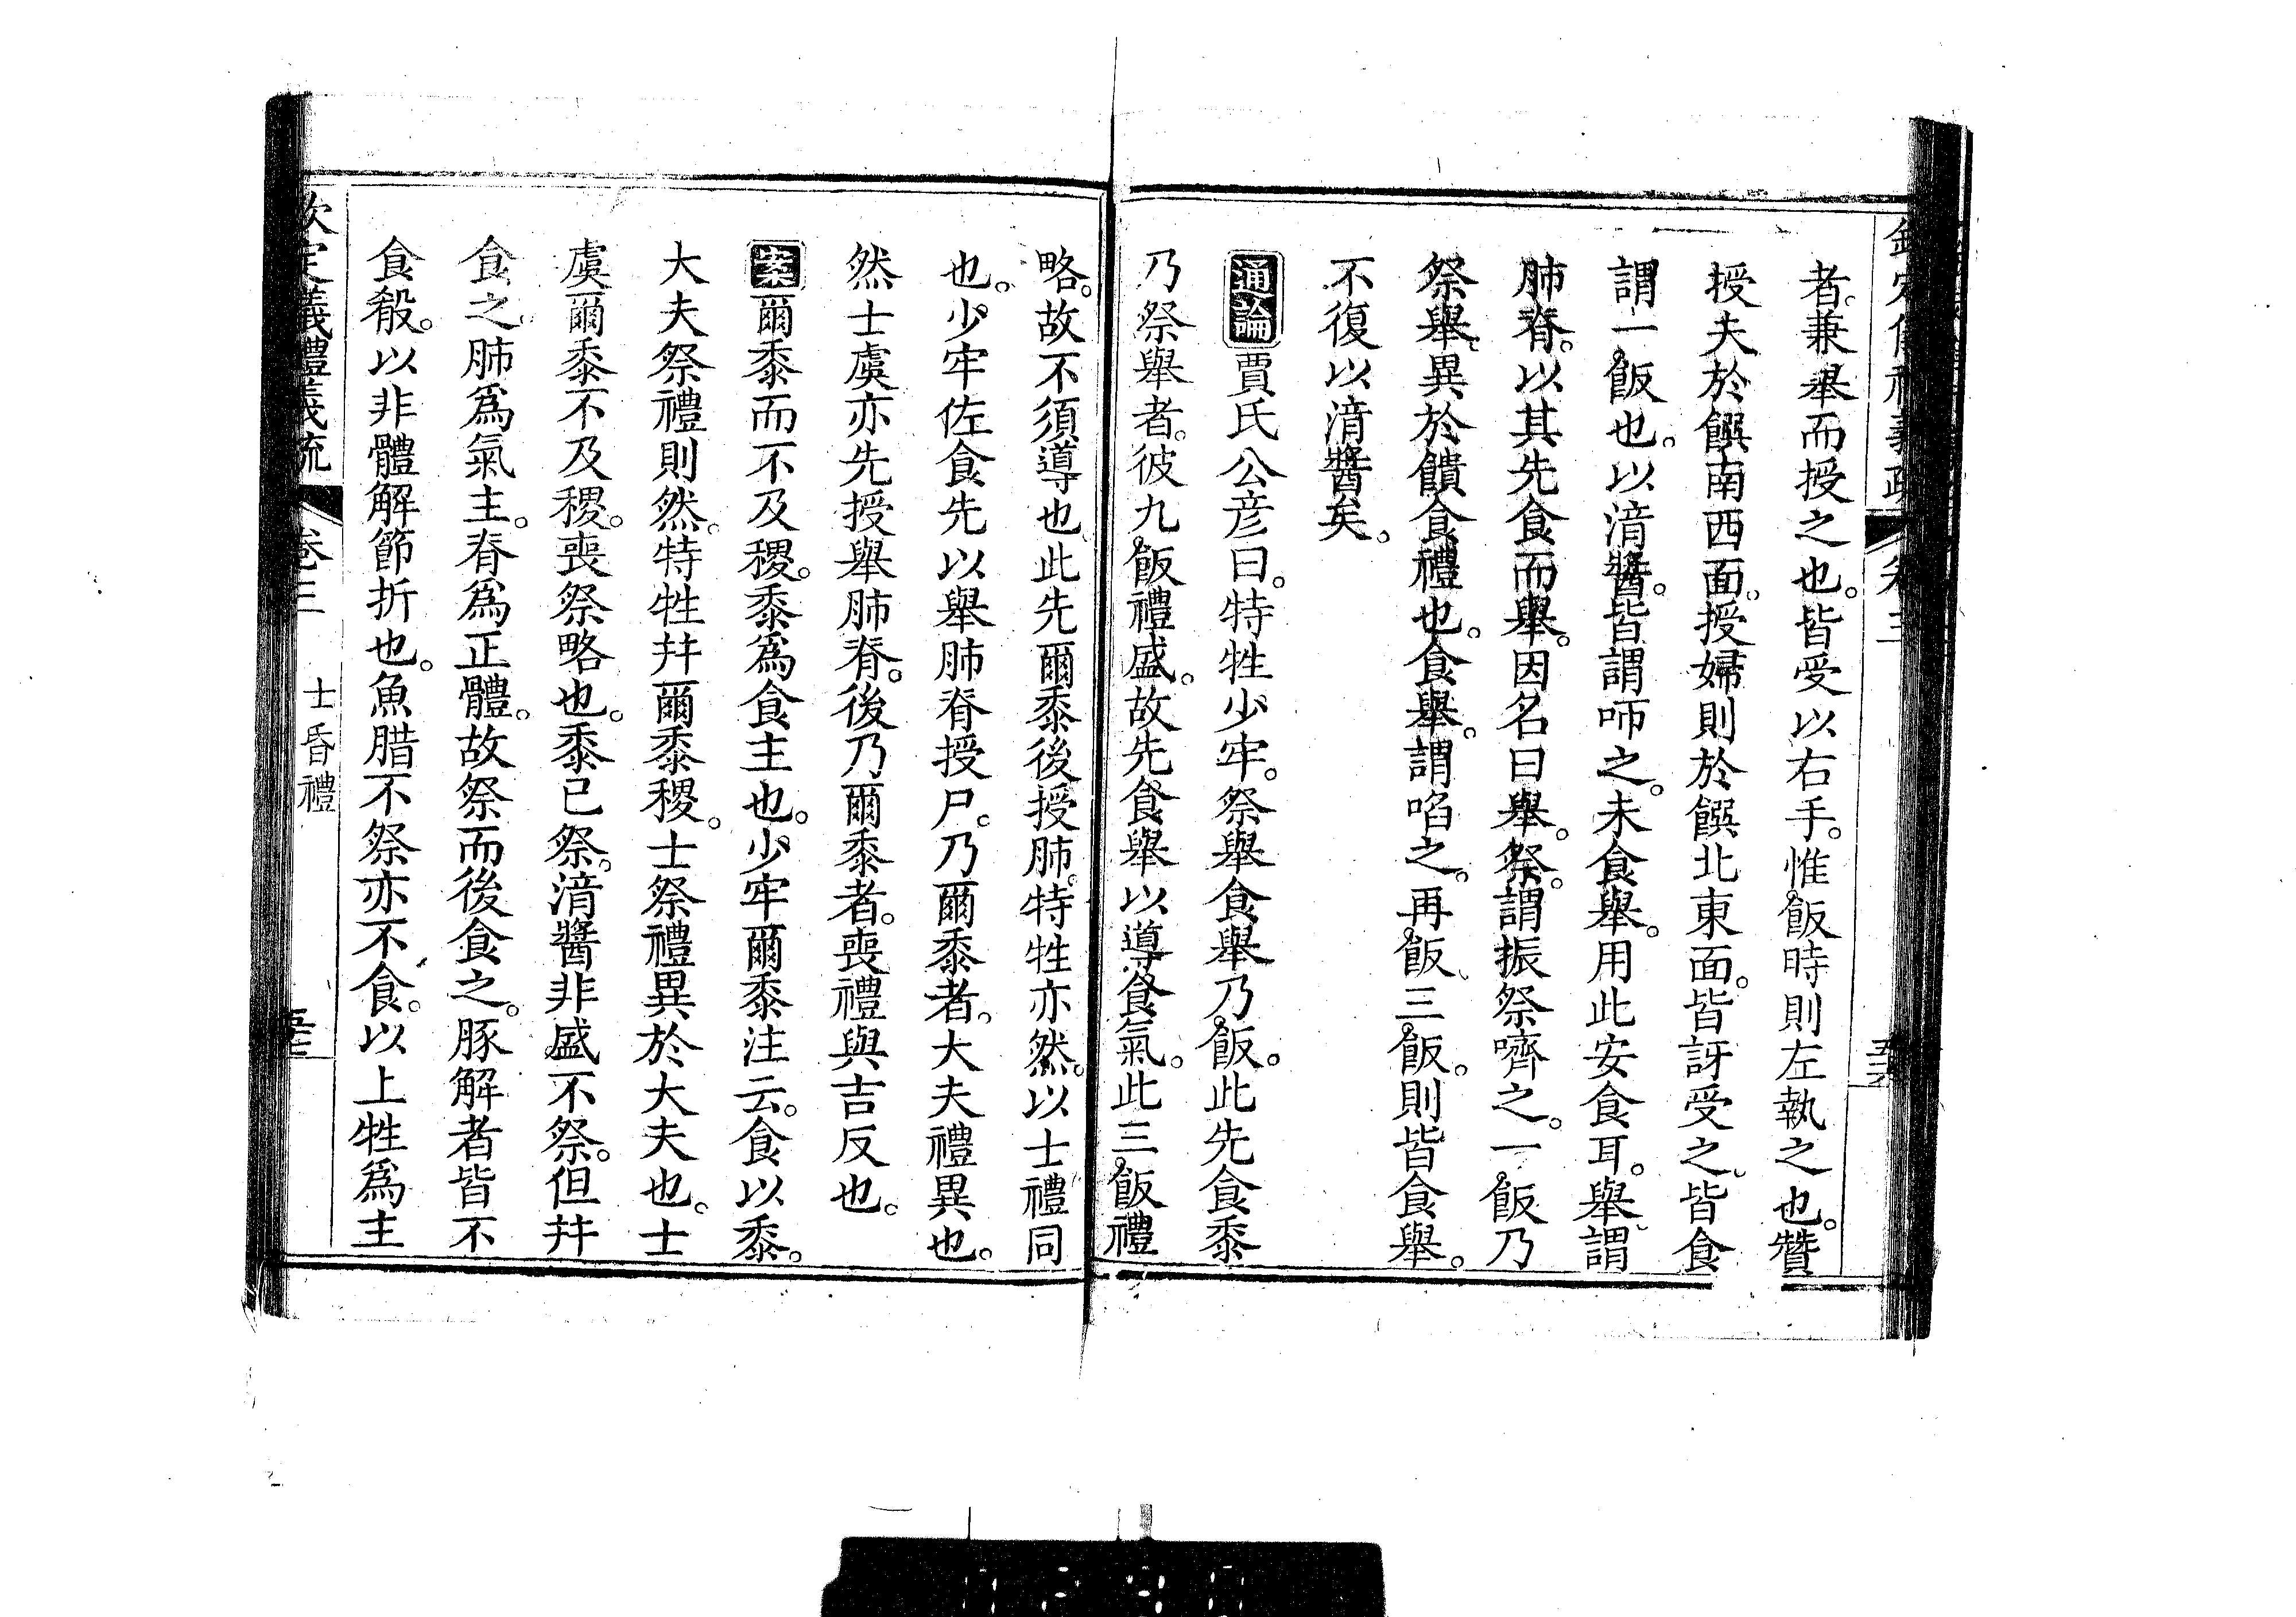 者。兼舉而授之也。皆受以右手。惟飯時則左執之也。贊
授夫於饌南西面。授婦則於饌北東面。皆訝受之。皆食
謂一飯也。以湆醬。皆謂咂之。未食舉。用此安食耳。舉謂
肺脊。以其先食而舉。因名曰舉。祭。謂振祭嚌之。一飯乃
祭舉。異於饋食禮也。食舉。謂啗之。再飯、三飯。則皆食舉。
不復以湆醬矣。
通論 賈氏公彦曰。特牲少牢。祭舉食舉乃飯。此先食黍
乃祭舉者。彼九飯禮盛。故先食舉以導食氣。此三飯禮
略。故不須導也。此先爾黍後授肺。特牲亦然。以士禮同
也。少牢佐食先以舉肺脊授尸。乃爾黍者。大夫禮異也。
然士虞亦先授舉肺脊。後乃爾黍者。喪禮與吉反也。
案 爾黍而不及稷。黍爲食主也。少牢爾黍注云。食以黍。
大夫祭禮則然。特牲幷爾黍稷。士祭禮異於大夫也。士
虞爾黍不及稷。喪祭略也。黍已祭。湆醬非盛不祭。但幷
食之。肺爲氣主。脊爲正體。故祭而後食之。豚解者皆不
食殽。以非體解節折也。魚腊不祭亦不食。以上牲爲主
欽定儀禮義疏 卷三 士昏禮 至七